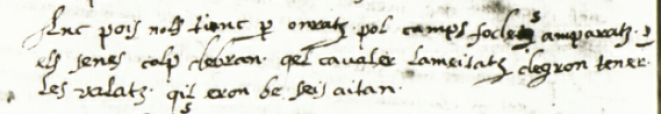 Anc pois nols tienc per onratz pol camps foc los amparatz. per
els senes colp cobran. qel cavaler lameitatz degron tener
les valatz. qil eron be seis aitan.